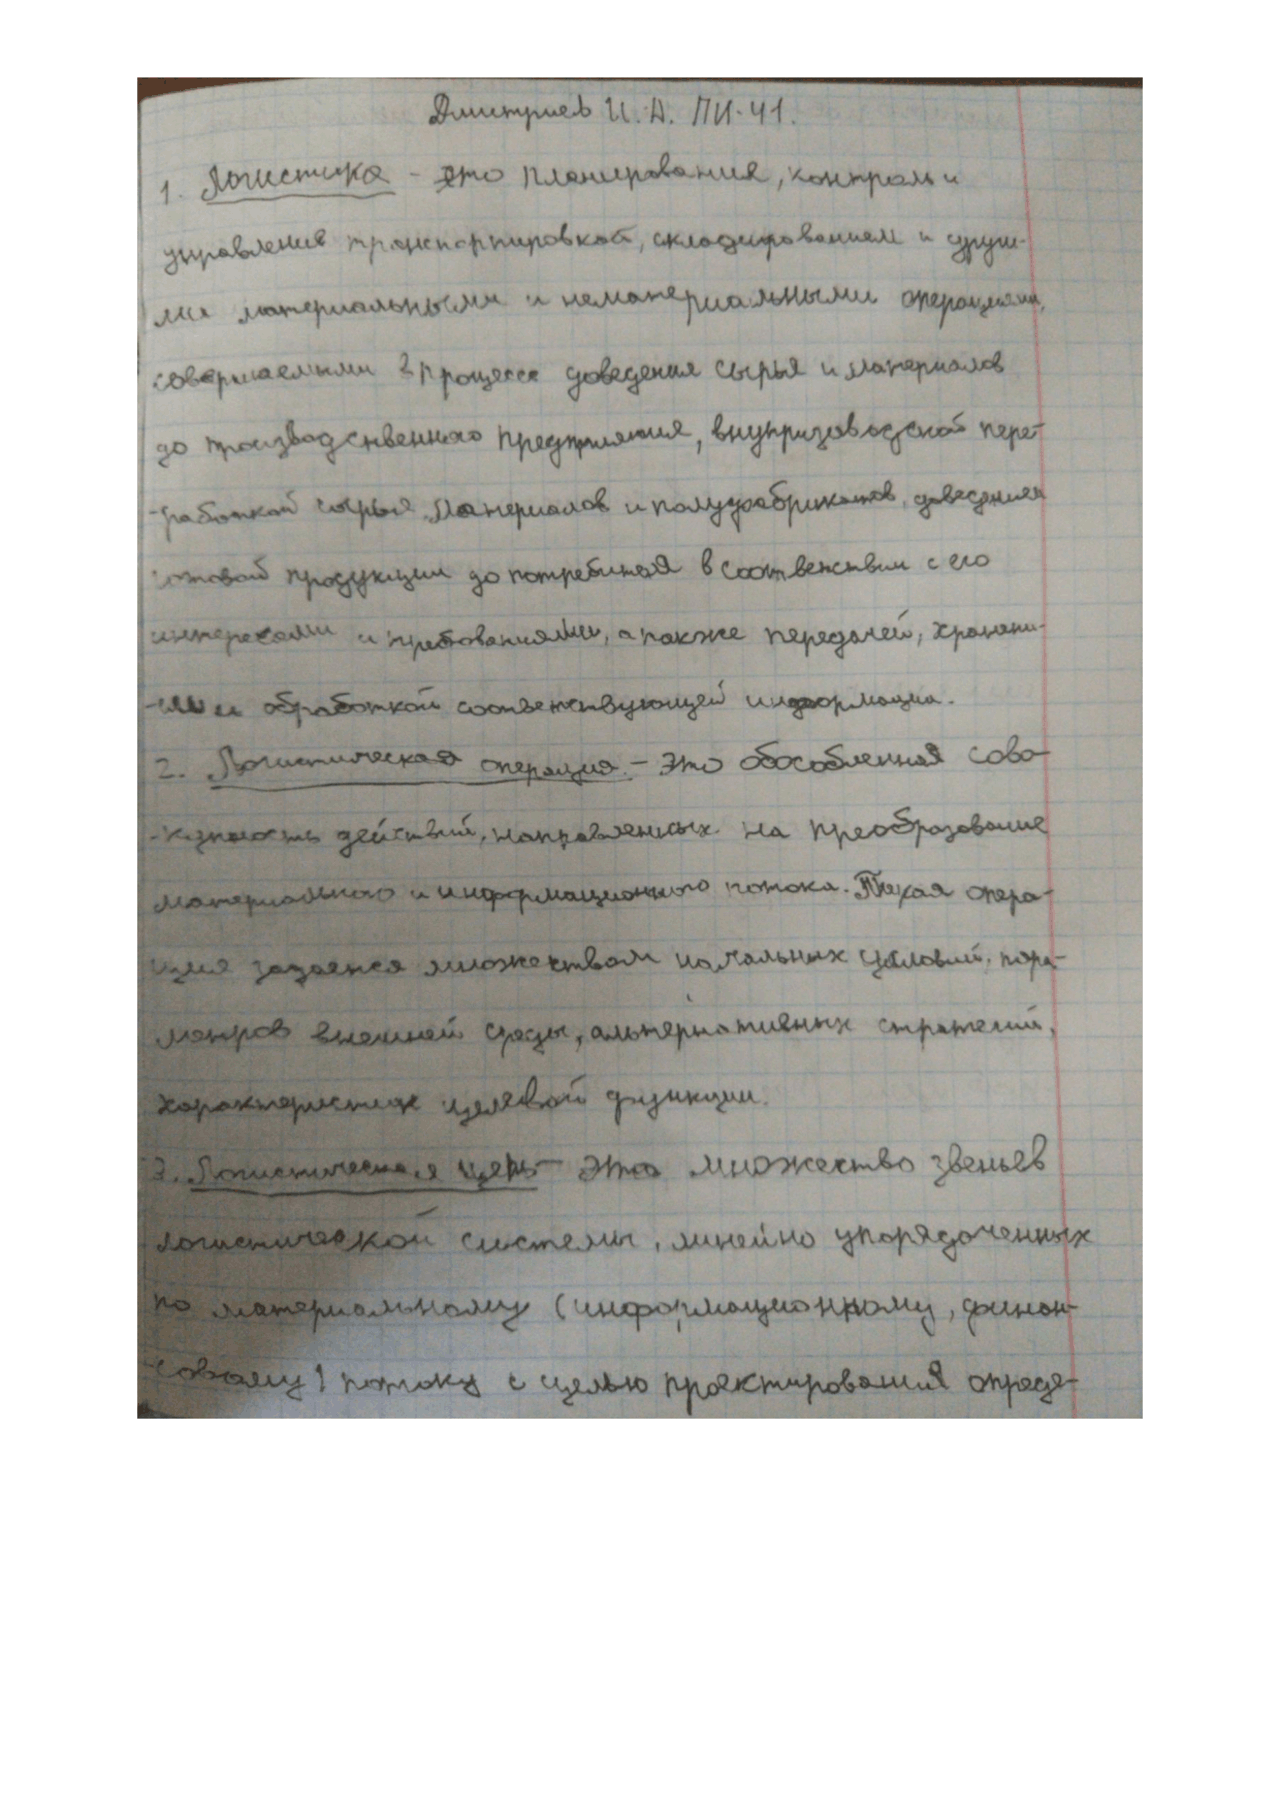 Дмитриев И.А. ПИ-41.
1. Логистика - это планирования, контроль и
управления транспортировкой, складированием и други-
ми материальными и нематериальными операциями,
совершаемыми в процессе доведения сырья и материалов
до производственного предприятия, внутризаводской пере-
-работкой сырья, материалов и полуфабрикатов, доведения
готовой продукции до потребителя в соответствии с его
интересами и требованиями, а также передачей, хранени-
-ем и обработкой соответствующей информации.
2. Логистическая операция - это обособленная сово-
-купность действий, направленных на преобразование
материального и информационного потока. Такая опера-
ция задается множеством начальных условий, пара-
метров внешней среды, альтернативных стратегий,
характеристик целевой функции.
3. Логистическая цепь - это множество звеньев
логистической системы, линейно упорядоченных
по материальному (информационному, финан-
совому) потоку с целью проектирования опреде-